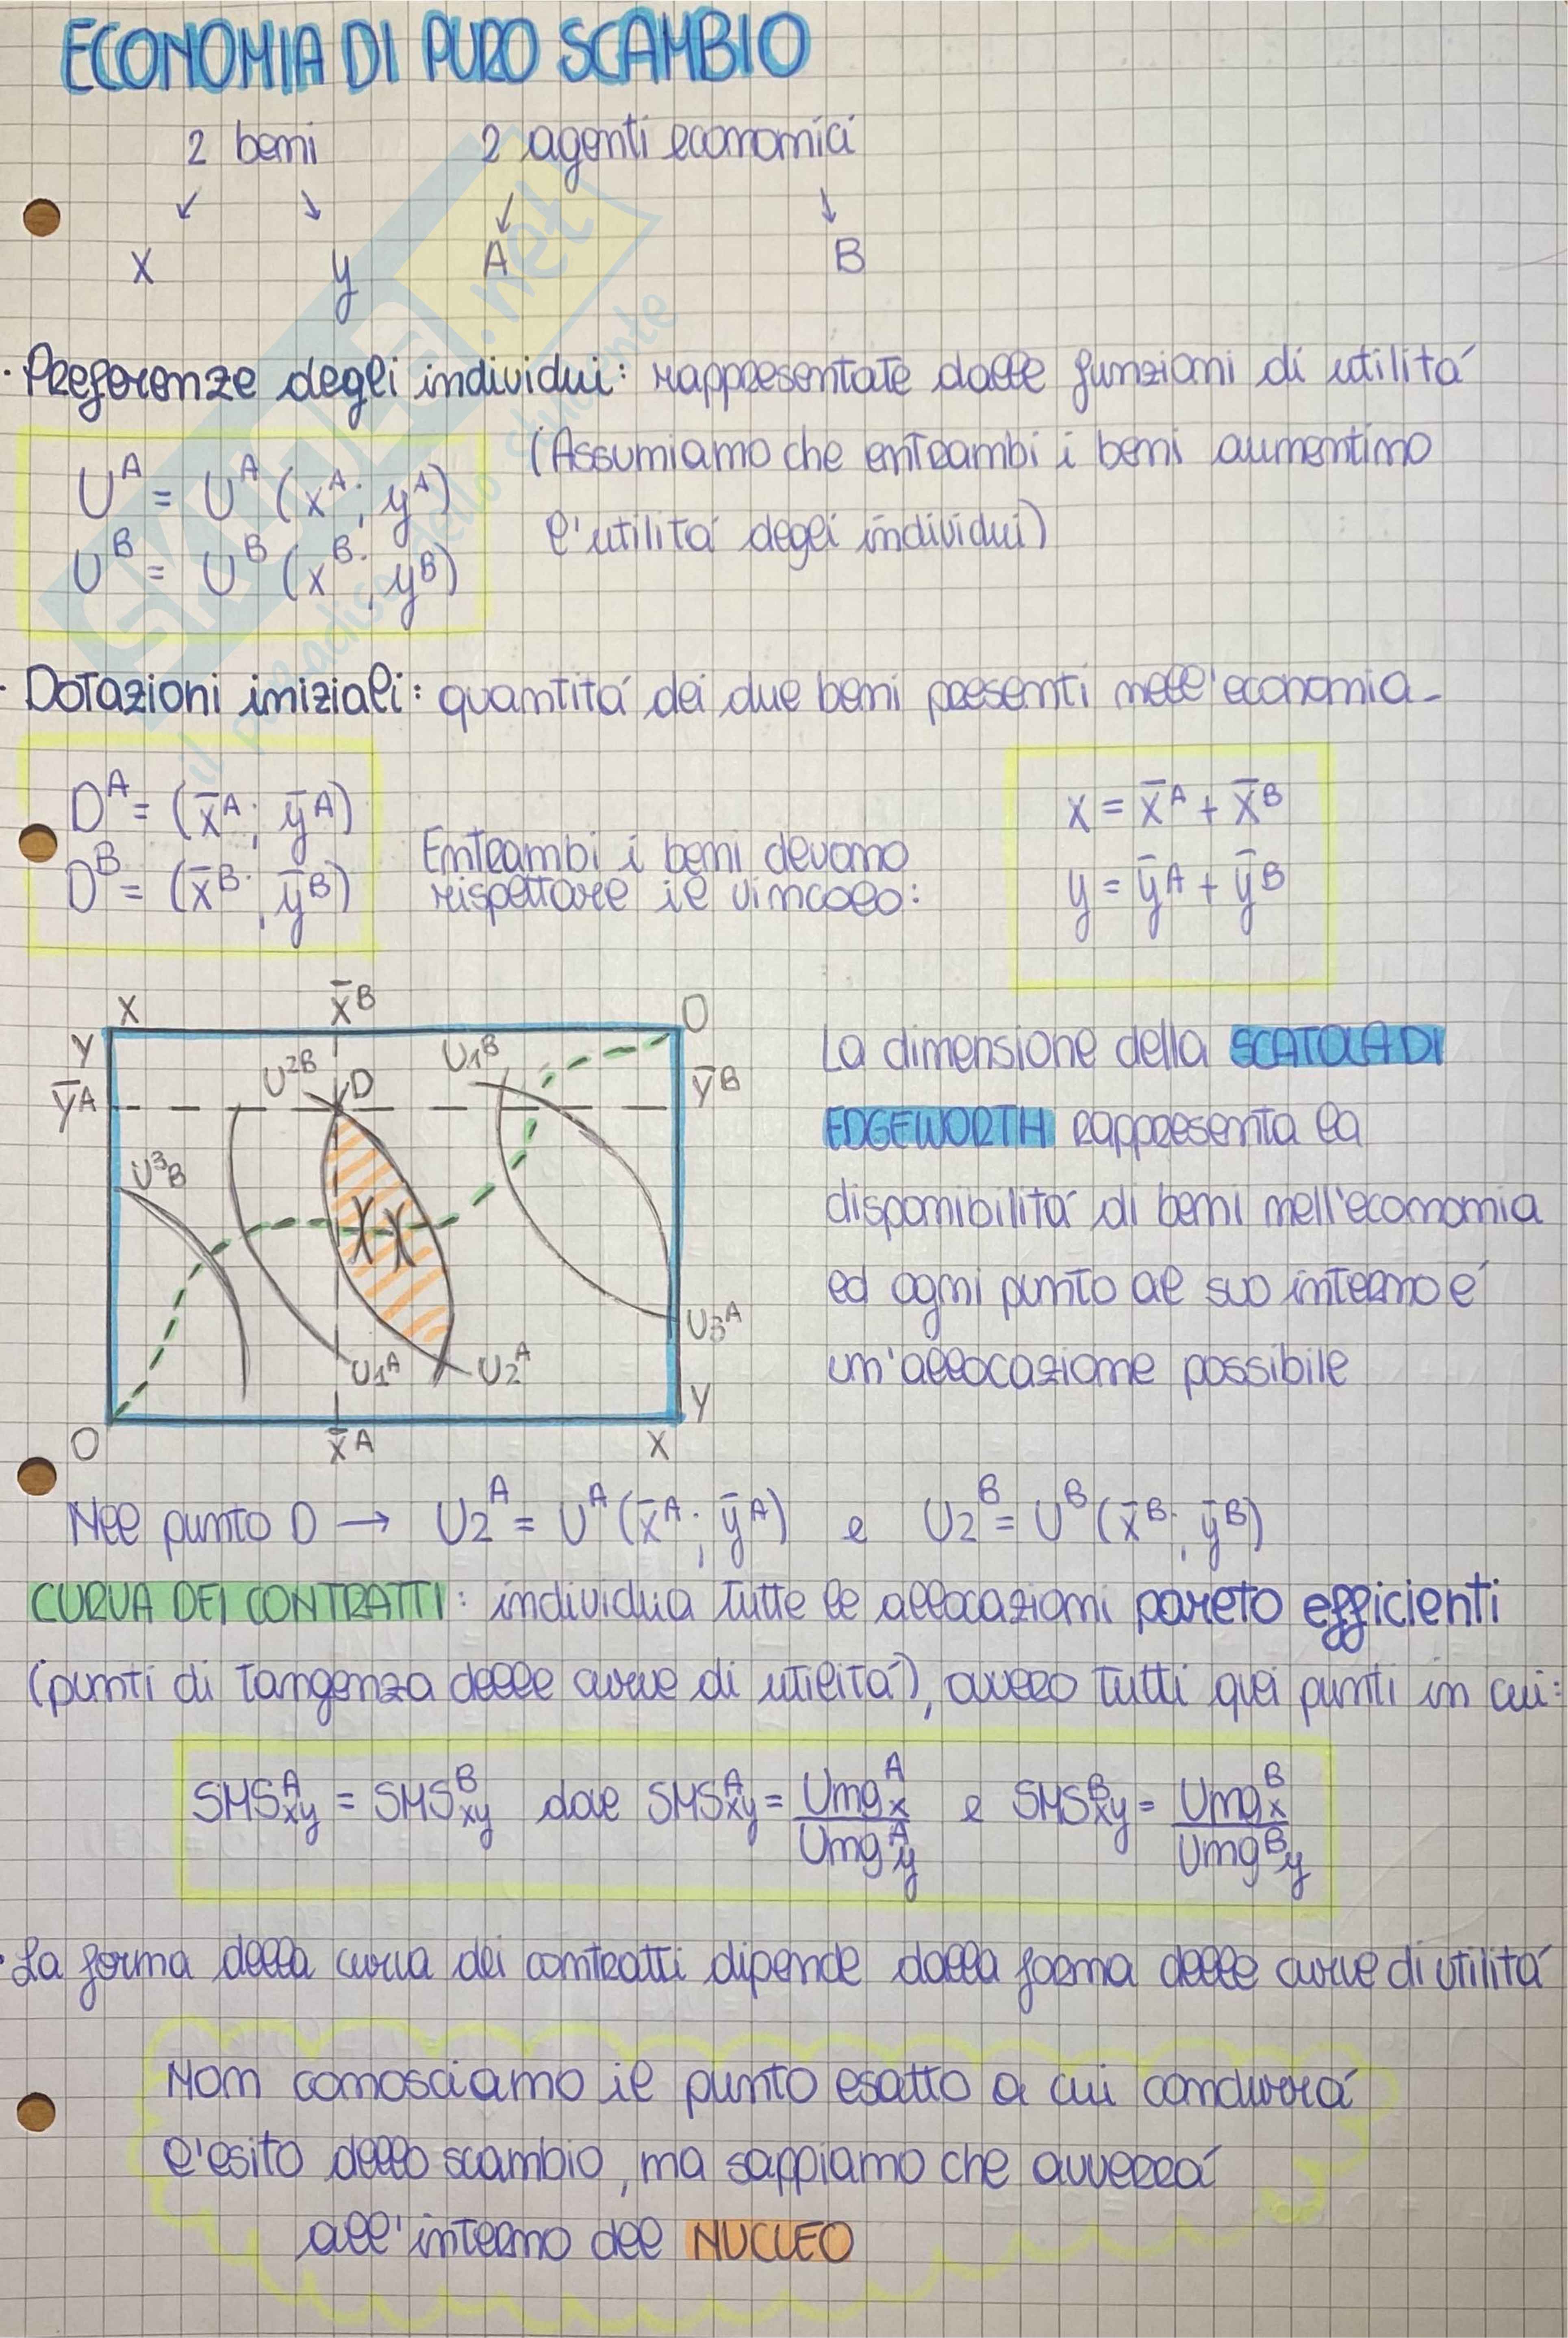 ECONOMIA DI PURO SCAMBIO
2 beni 2 agenti economici
↙ ↘ ↙ ↘
x y A B
· Preferenze degli individui: rappresentate dalle funzioni di utilitá
(Assumiamo che entrambi i beni aumentino
l'utilitá degli individui)
U^A = U^A (x^A; y^A)
U^B = U^B (x^B; y^B)
· Dotazioni iniziali: quantitá dei due beni presenti nell'economia-
D^A = (x̄^A; ȳ^A)
D^B = (x̄^B; ȳ^B)
Entrambi i beni devono
rispettare il vincolo:
x = x̄^A + x̄^B
y = ȳ^A + ȳ^B
X x̄^B O
Y U^2B D U1^B ȳ^B
ȳ^A
U^3B
U3^A
U1^A U2^A
Y
O x̄^A X
La dimensione della SCATOLA DI
EDGEWORTH rappresenta la
disponibilitá di beni nell'economia
ed ogni punto al suo interno é
un'allocazione possibile
Nel punto D → U2^A = U^A (x̄^A; ȳ^A) e U2^B = U^B (x̄^B; ȳ^B)
CURVA DEI CONTRATTI: individua tutte le allocazioni pareto efficienti
(punti di tangenza delle curve di utilitá), ovvero tutti quei punti in cui:
SMS^A_xy = SMS^B_xy dove SMS^A_xy = Umg^A_x / Umg^A_y e SMS^B_xy = Umg^B_x / Umg^B_y
· La forma della curva dei contratti dipende dalla forma delle curve di utilitá
Non conosciamo il punto esatto a cui condurrá
l'esito dello scambio, ma sappiamo che avverrá
all'interno del NUCLEO
SKUOLA.net
il paradiso dello studente